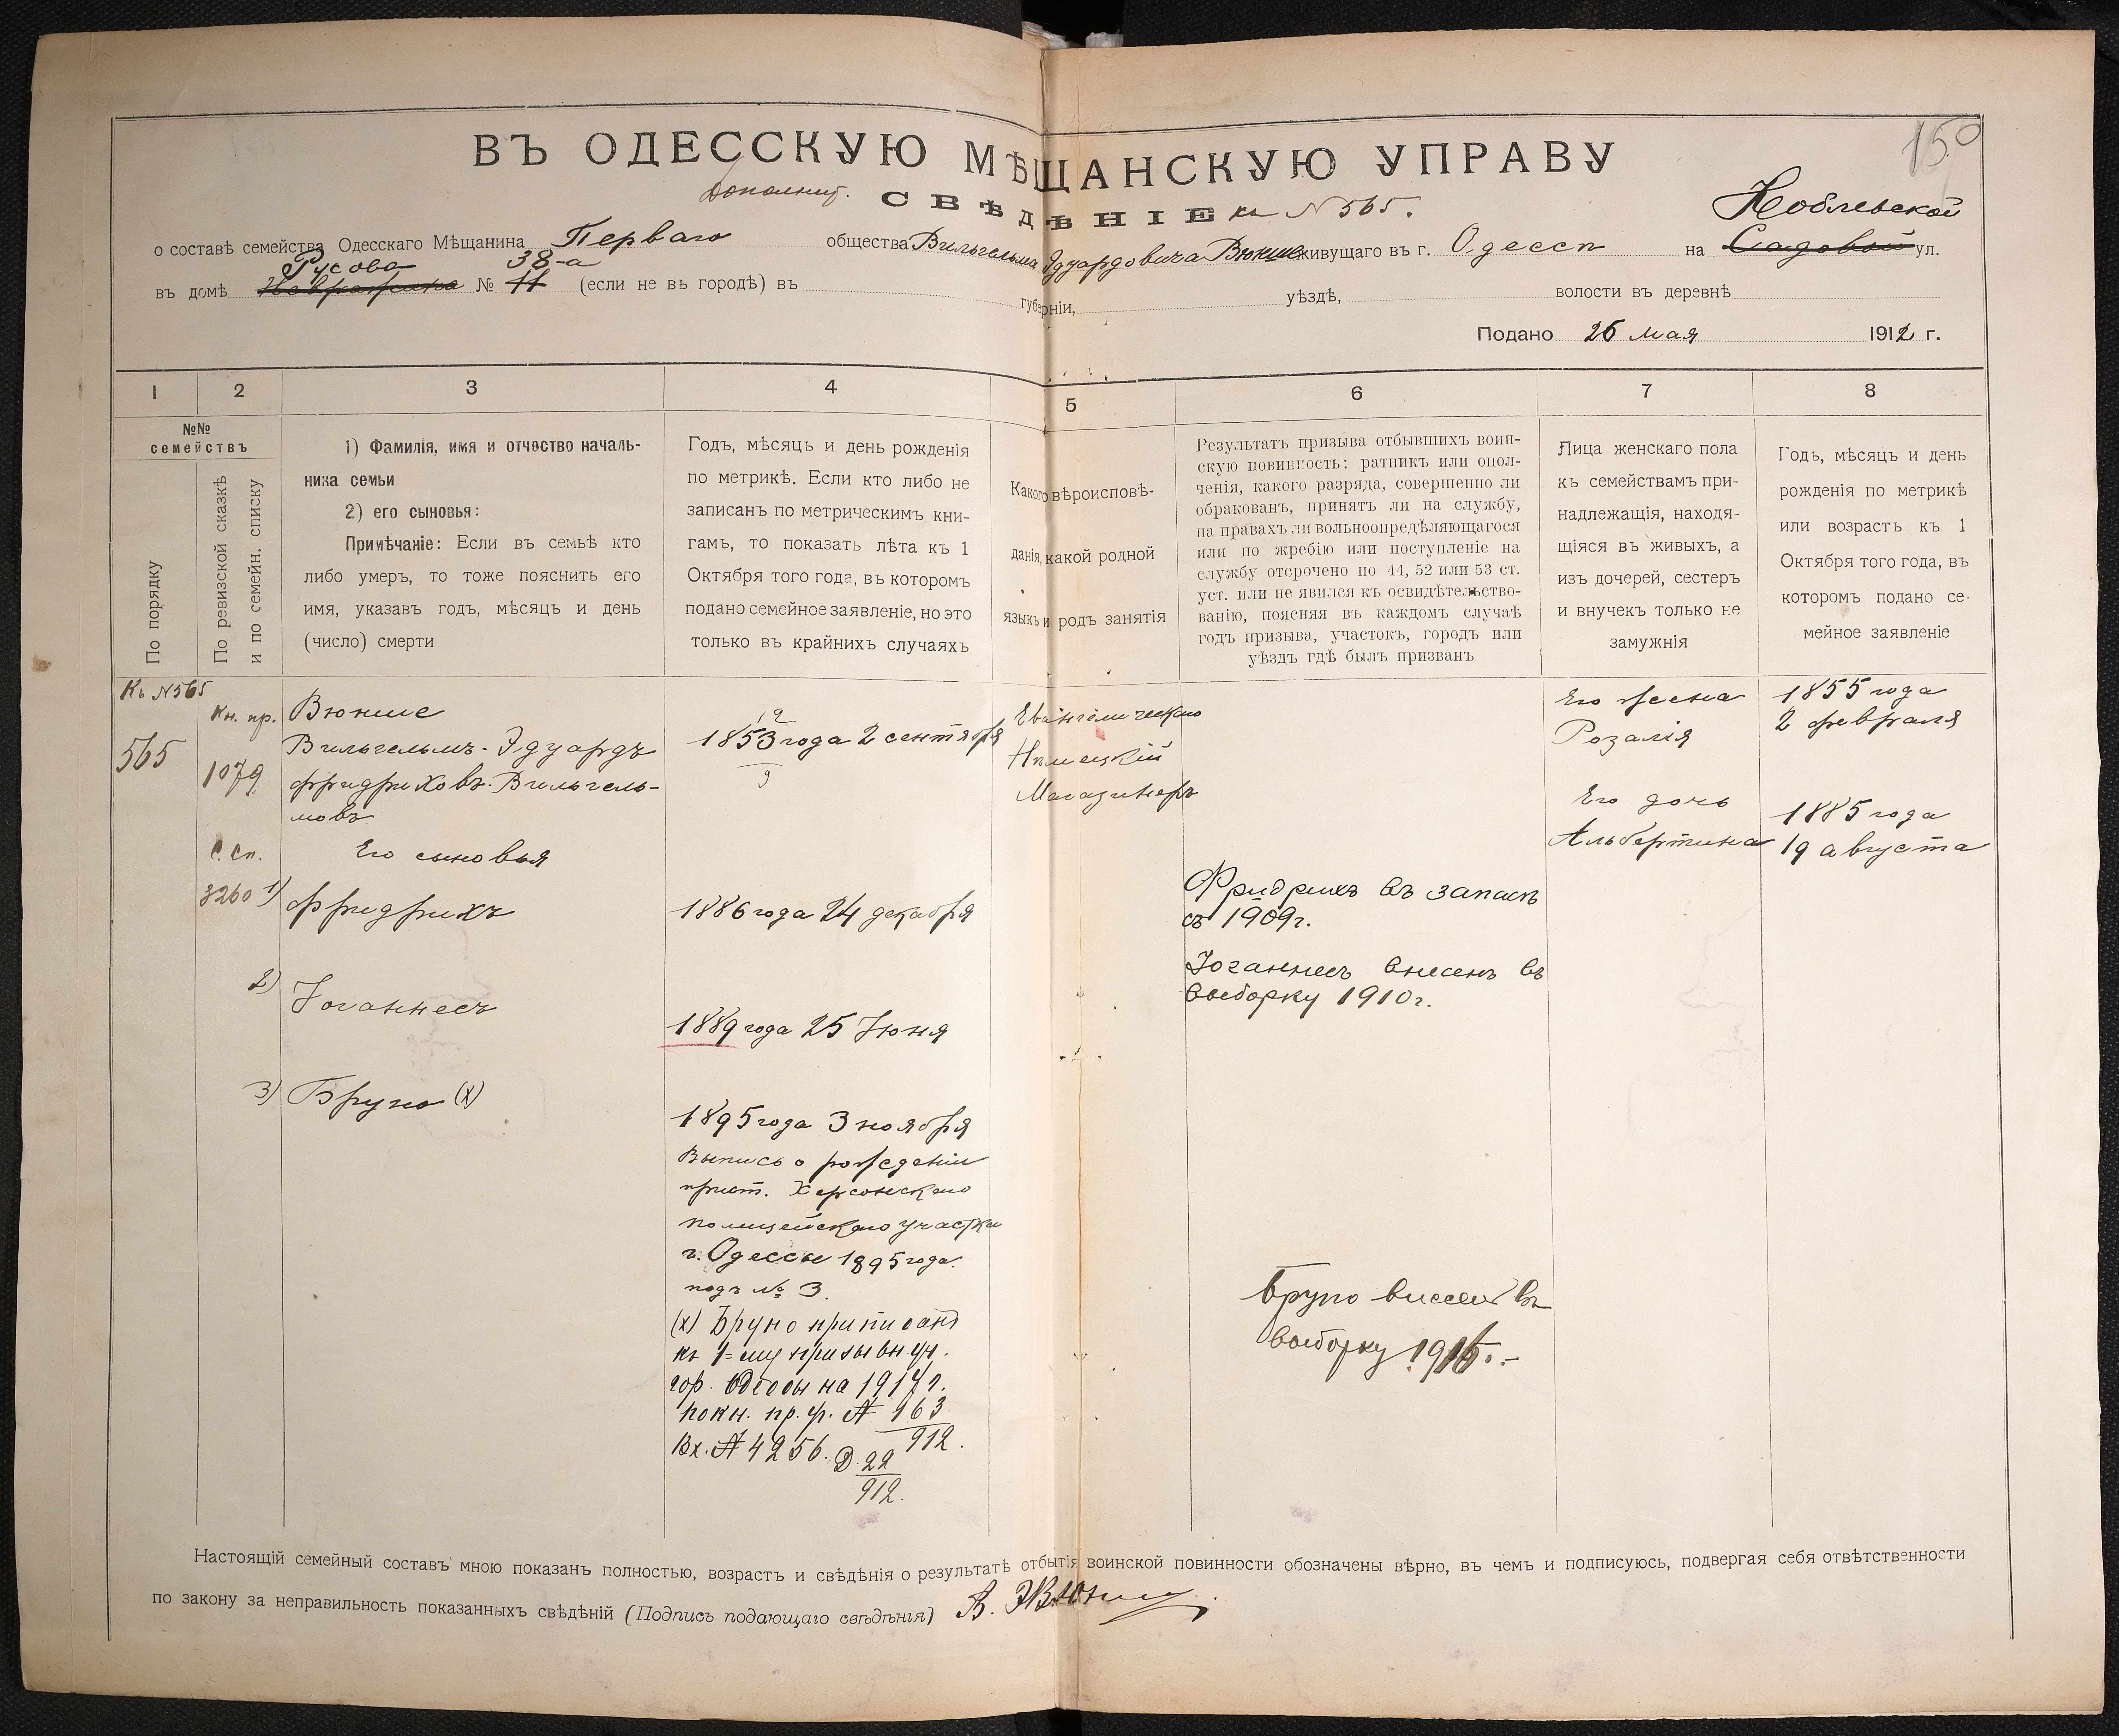 150
ВЪ ОДЕССКУЮ МѢЩАНСКУЮ УПРАВУ
Дополнит. СВѢДѢНІЕ къ N 565.
Коблевской
о составѣ семейства Одесскаго Мѣщанина Перваго общества Вильгельма Эдуардовича Вюнше живущаго въ г. Одессѣ на Садовой ул.
Русова 38-а
въ домѣ № 11 (если не въ городѣ) въ губерніи, уѣздѣ, волости въ деревнѣ
Подано 26 мая 1912 г.
1 2 3 4 5 6 7 8
№№
семействъ
По порядку
По ревизской сказкѣ
и по семейн. списку
1) Фамилія, имя и отчество началь-
ника семьи
2) его сыновья:
Примѣчаніе: Если въ семьѣ кто
либо умеръ, то тоже пояснить его
имя, указавъ годъ, мѣсяцъ и день
(число) смерти
Годъ, мѣсяцъ и день рожденія
по метрикѣ. Если кто либо не
записанъ по метрическимъ кни-
гамъ, то показать лѣта къ 1
Октября того года, въ которомъ
подано семейное заявленіе, но это
только въ крайнихъ случаяхъ
Какого вѣроисповѣ-
данія, какой родной
языкъ и родъ занятія
Результатъ призыва отбывшихъ воин-
скую повинность: ратникъ или опол-
ченія, какого разряда, совершенно ли
обракованъ, принятъ ли на службу,
на правахъ ли вольноопредѣляющагося
или по жребію или поступленіе на
службу отсрочено по 44, 52 или 53 ст.
уст. или не явился къ освидѣтельство-
ванію, поясняя въ каждомъ случаѣ
годъ призыва, участокъ, городъ или
уѣздъ гдѣ былъ призванъ
Лица женскаго пола
къ семействамъ при-
надлежащія, находя-
щіяся въ живыхъ, а
изъ дочерей, сестеръ
и внучекъ только не
замужнія
Годъ, мѣсяцъ и день
рожденія по метрикѣ
или возрастъ къ 1
Октября того года, въ
которомъ подано се-
мейное заявленіе
Къ N 565
565
Кн. пр.
1079
С. Сп.
3260
Вюнше
Вильгельмъ-Эдуардъ
Фридриховъ-Вильгель-
мовъ
Его сыновья
1) Фридрихъ
2) Іоганнесъ
3) Бруно (х)
1853 года 2 сентября
9
1886 года 24 декабря
1889 года 25 Іюня
1895 года 3 ноября
Выпись о рожденіи
прист. Херсонскаго
полицейскаго участка
г. Одессы 1895 года
подъ № 3.
(х) Бруно приписанъ
къ 1=му призывн. уч.
гор. Одессы на 1917 г.
по кн. пр. уч. N 163
912.
Вх. N 4256. Д. 22
912.
Евангелическаго
Нѣмецкій
Магазинеръ
Фридрихъ въ запасѣ
съ 1909 г.
Іоганнесъ внесенъ въ
выборку 1910 г.
Бруно внесенъ въ
выборку 1916 г.-
Его жена
Розалія
Его дочь
Альбертина
1855 года
2 февраля
1885 года
19 августа
Настоящій семейный составъ мною показанъ полностью, возрастъ и свѣдѣнія о результатѣ отбытія воинской повинности обозначены вѣрно, въ чемъ и подписуюсь, подвергая себя отвѣтственности
по закону за неправильность показанныхъ свѣдѣній (Подпись подающаго свѣдѣнія) В. Э. Вюнше